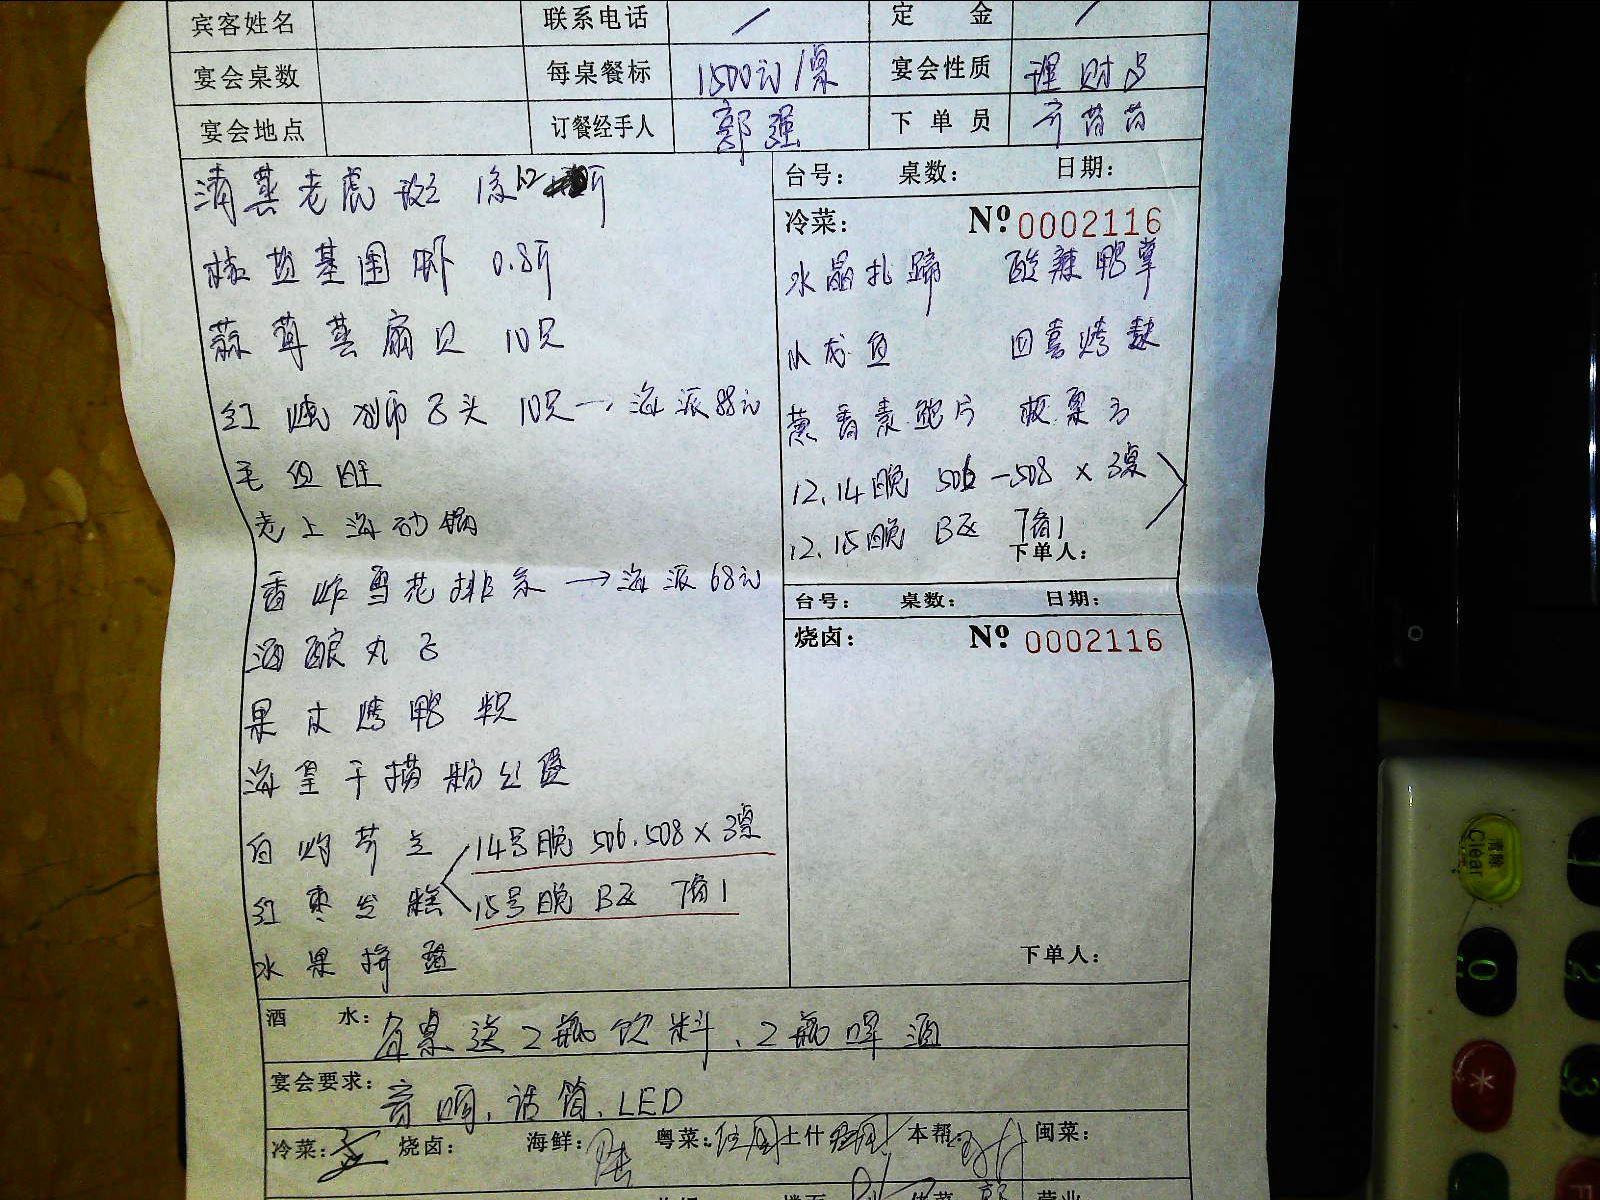 宾客姓名 联系电话 / 定 金 /
宴会桌数 每桌餐标 1500元/桌 宴会性质 理财
宴会地点 订餐经手人 郭强 下单员 齐苗苗
台号: 桌数: 日期:
清蒸老虎斑 1条 1.2斤
椒盐基围虾 0.8斤
蒜茸蒸扇贝 10只
红烧狮子头 10只→海派88元
毛血旺
老上海砂锅
香炸雪花排条→海派68元
酒酿丸子
果木烤鸭 半只
海皇干捞粉丝煲
白灼芥兰
红枣发糕
14号晚 506.508×3桌
15号晚 B区 7备1
水果拼盘
冷菜: № 0002116
水晶扎蹄 酸辣鸭掌
小龙鱼 四喜烤麸
葱香素鲍片
12.14晚 506-508×3桌
12.15晚 B区 7备1
下单人:
台号: 桌数: 日期:
烧卤: № 0002116
下单人:
酒 水: 每桌送2瓶饮料、2瓶啤酒
宴会要求: 音响、话筒、LED
冷菜: 烧卤: 海鲜: 粤菜: 上什 本帮: 闽菜: